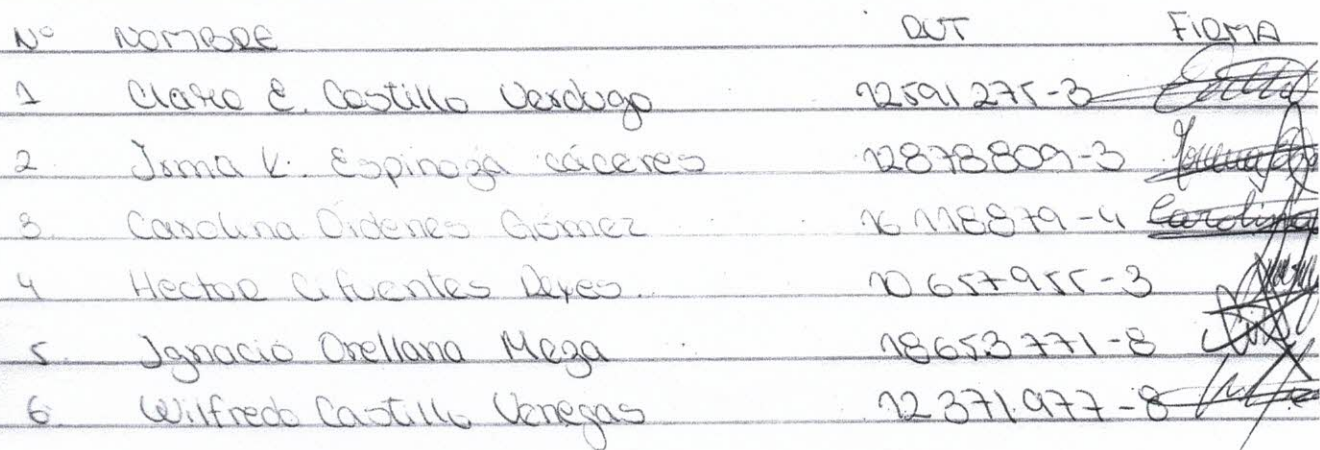 Nº NOMBRE RUT FIRMA
1 Clara E. Castillo Verdugo 12591275-3
2 Irma V. Espinoza cáceres 12878809-3
3 Carolina Ordenes Gómez 16118879-4 Carolina
4 Hector Cifuentes Reyes. 10657955-3
5. Ignacio Orellana Meza 18653771-8
6 Wilfredo Castillo Venegas 12371977-8